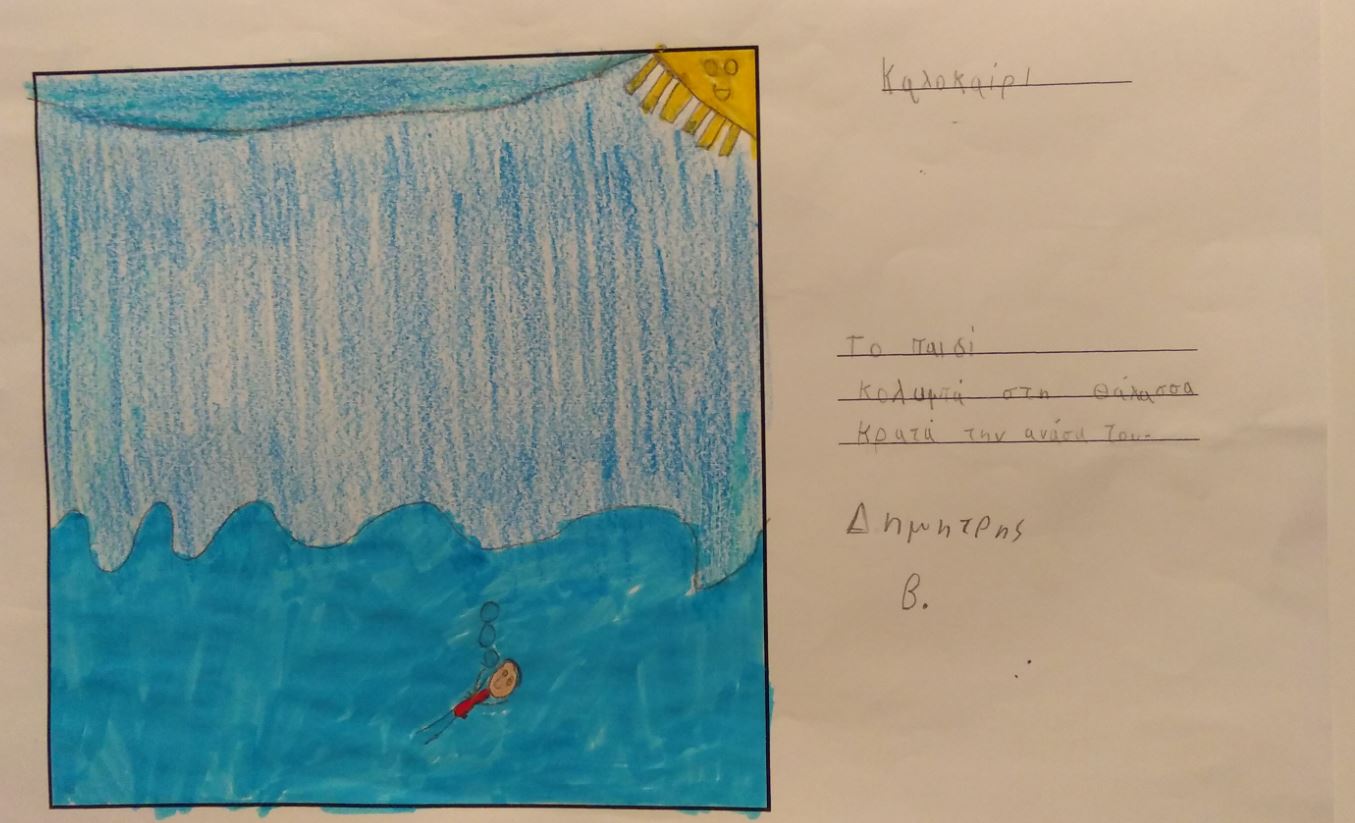 Καλοκαίρι
Το παιδί
κολυμπά στη θάλασσα
κρατά την ανάσα του.
Δημητρης
Β.